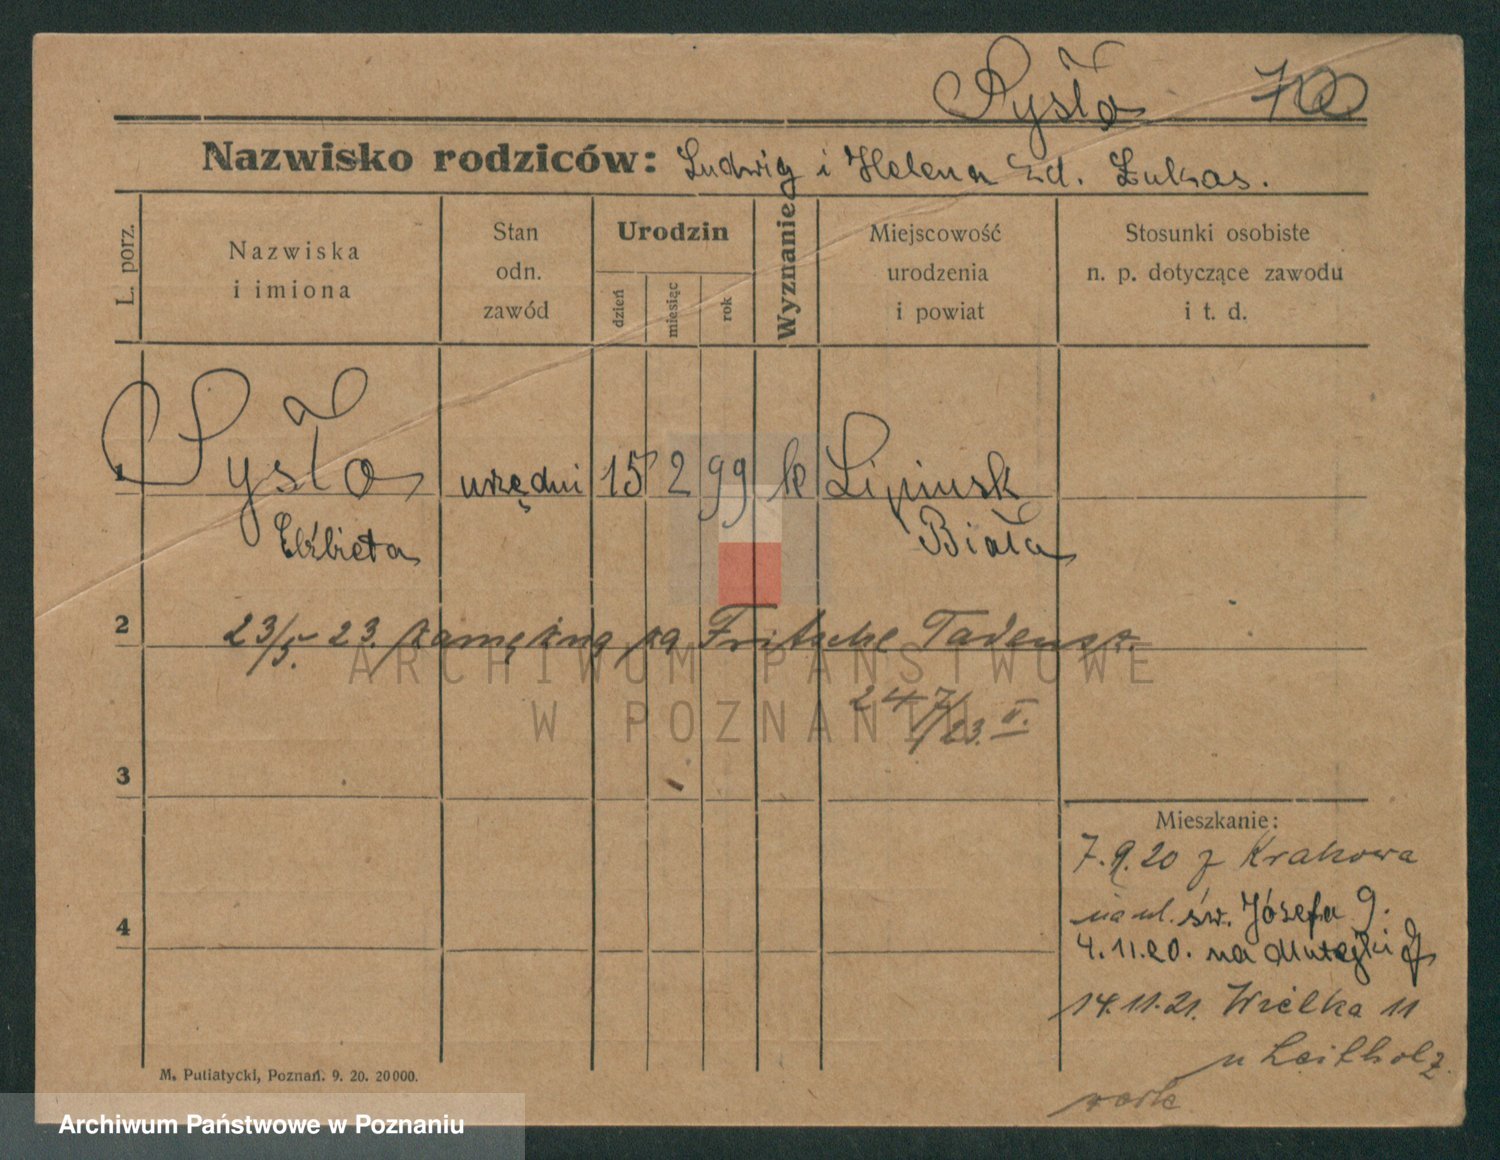 Sysło 700
Nazwisko rodziców: Ludwig i Helena zd. Łukas.
L. porz.
Nazwiska
i imiona
Stan
odn.
zawód
Urodzin
dzień
miesiąc
rok
Wyznanie
Miejscowość
urodzenia
i powiat
Stosunki osobiste
n. p. dotyczące zawodu
i t. d.
1 Sysło urzędni 15 2 99 k Lipinsk
Elżbieta Biała
2 23/5. 23. zamężną za Fritsche Tadeusz.
24 7/23. V.
3
4
Mieszkanie:
7.9.20 z Krakowa
na ul. św. Józefa 9.
4.11.20. na Matejki
14.11.21. Wielka 11
u Leitholz
M. Putiatycki, Poznań. 9. 20. 20000.
ARCHIWUM PAŃSTWOWE
W POZNANIU
Archiwum Państwowe w Poznaniu